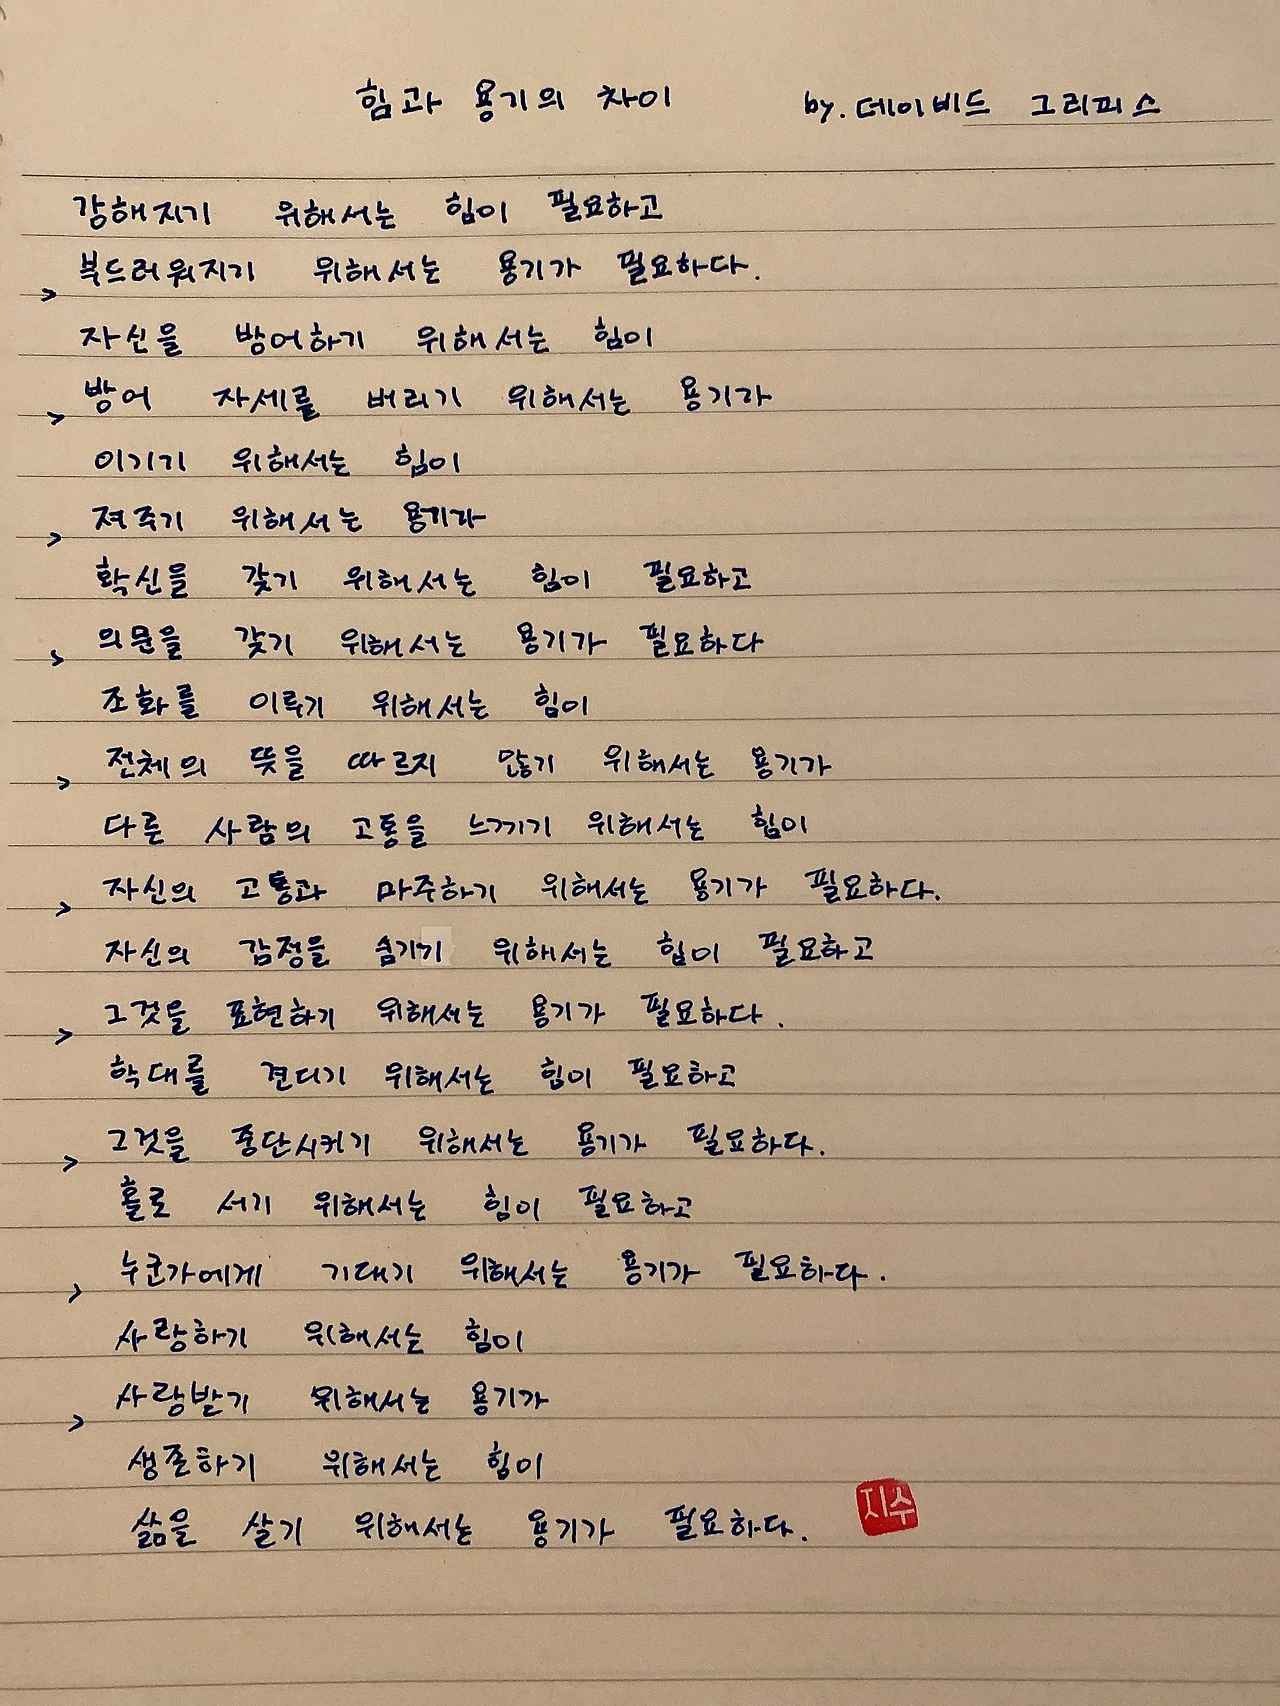 힘과 용기의 차이 by. 데이비드 그리피스
강해지기 위해서는 힘이 필요하고
부드러워지기 위해서는 용기가 필요하다.
자신을 방어하기 위해서는 힘이
방어 자세를 버리기 위해서는 용기가
이기기 위해서는 힘이
져주기 위해서는 용기가
확신을 갖기 위해서는 힘이 필요하고
의문을 갖기 위해서는 용기가 필요하다
조화를 이루기 위해서는 힘이
전체의 뜻을 따르지 않기 위해서는 용기가
다른 사람의 고통을 느끼기 위해서는 힘이
자신의 고통과 마주하기 위해서는 용기가 필요하다.
자신의 감정을 숨기기 위해서는 힘이 필요하고
그것을 표현하기 위해서는 용기가 필요하다.
학대를 견디기 위해서는 힘이 필요하고
그것을 중단시키기 위해서는 용기가 필요하다.
홀로 서기 위해서는 힘이 필요하고
누군가에게 기대기 위해서는 용기가 필요하다.
사랑하기 위해서는 힘이
사랑받기 위해서는 용기가
생존하기 위해서는 힘이
삶을 살기 위해서는 용기가 필요하다.
지수